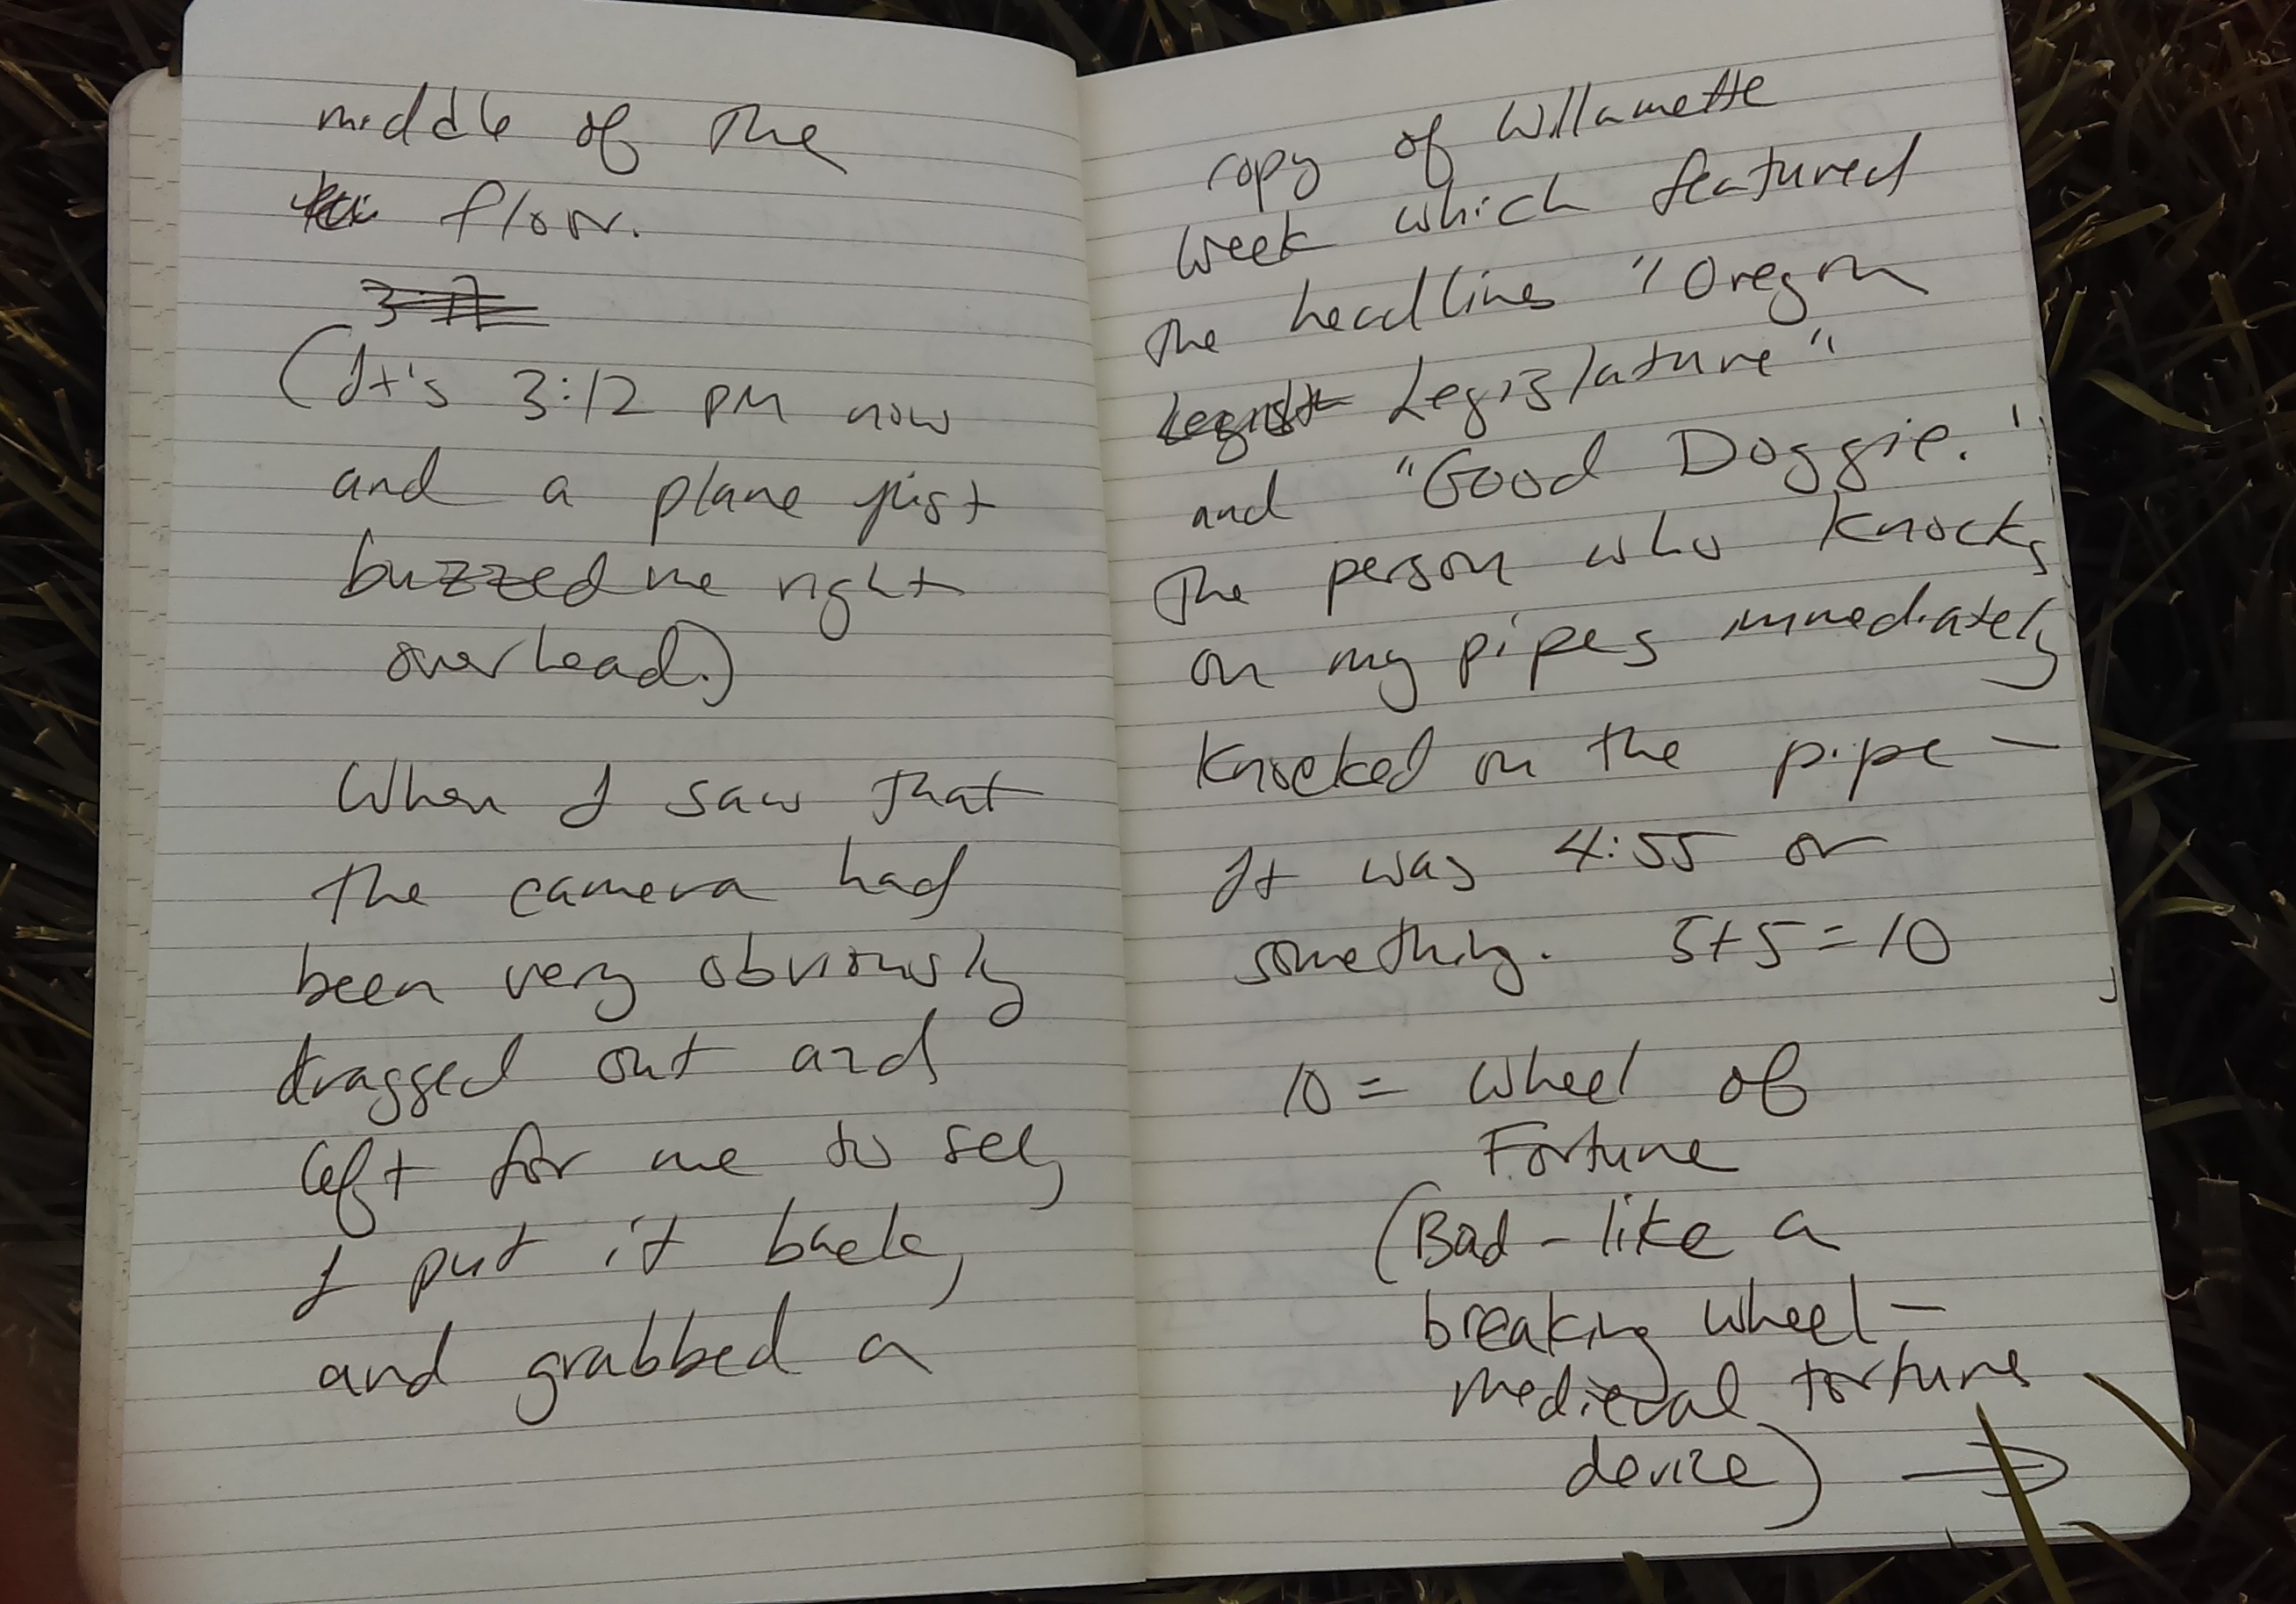 middle of the
flow.
(It's 3:12 pm now
and a plane just
buzzed me right
overhead.)
When I saw that
the camera had
been very obviously
dragged out and
left for me to see,
I put it back,
and grabbed a
copy of Willamette
Week which featured
the headlines "Oregon
Legislature"
and "Good Doggie."
The person who knocks
on my pipes immediately
knocked on the pipe —
It was 4:55 or
something. 5+5=10
10 = Wheel of
Fortune
(Bad - like a
breaking wheel —
medieval torture
device) →